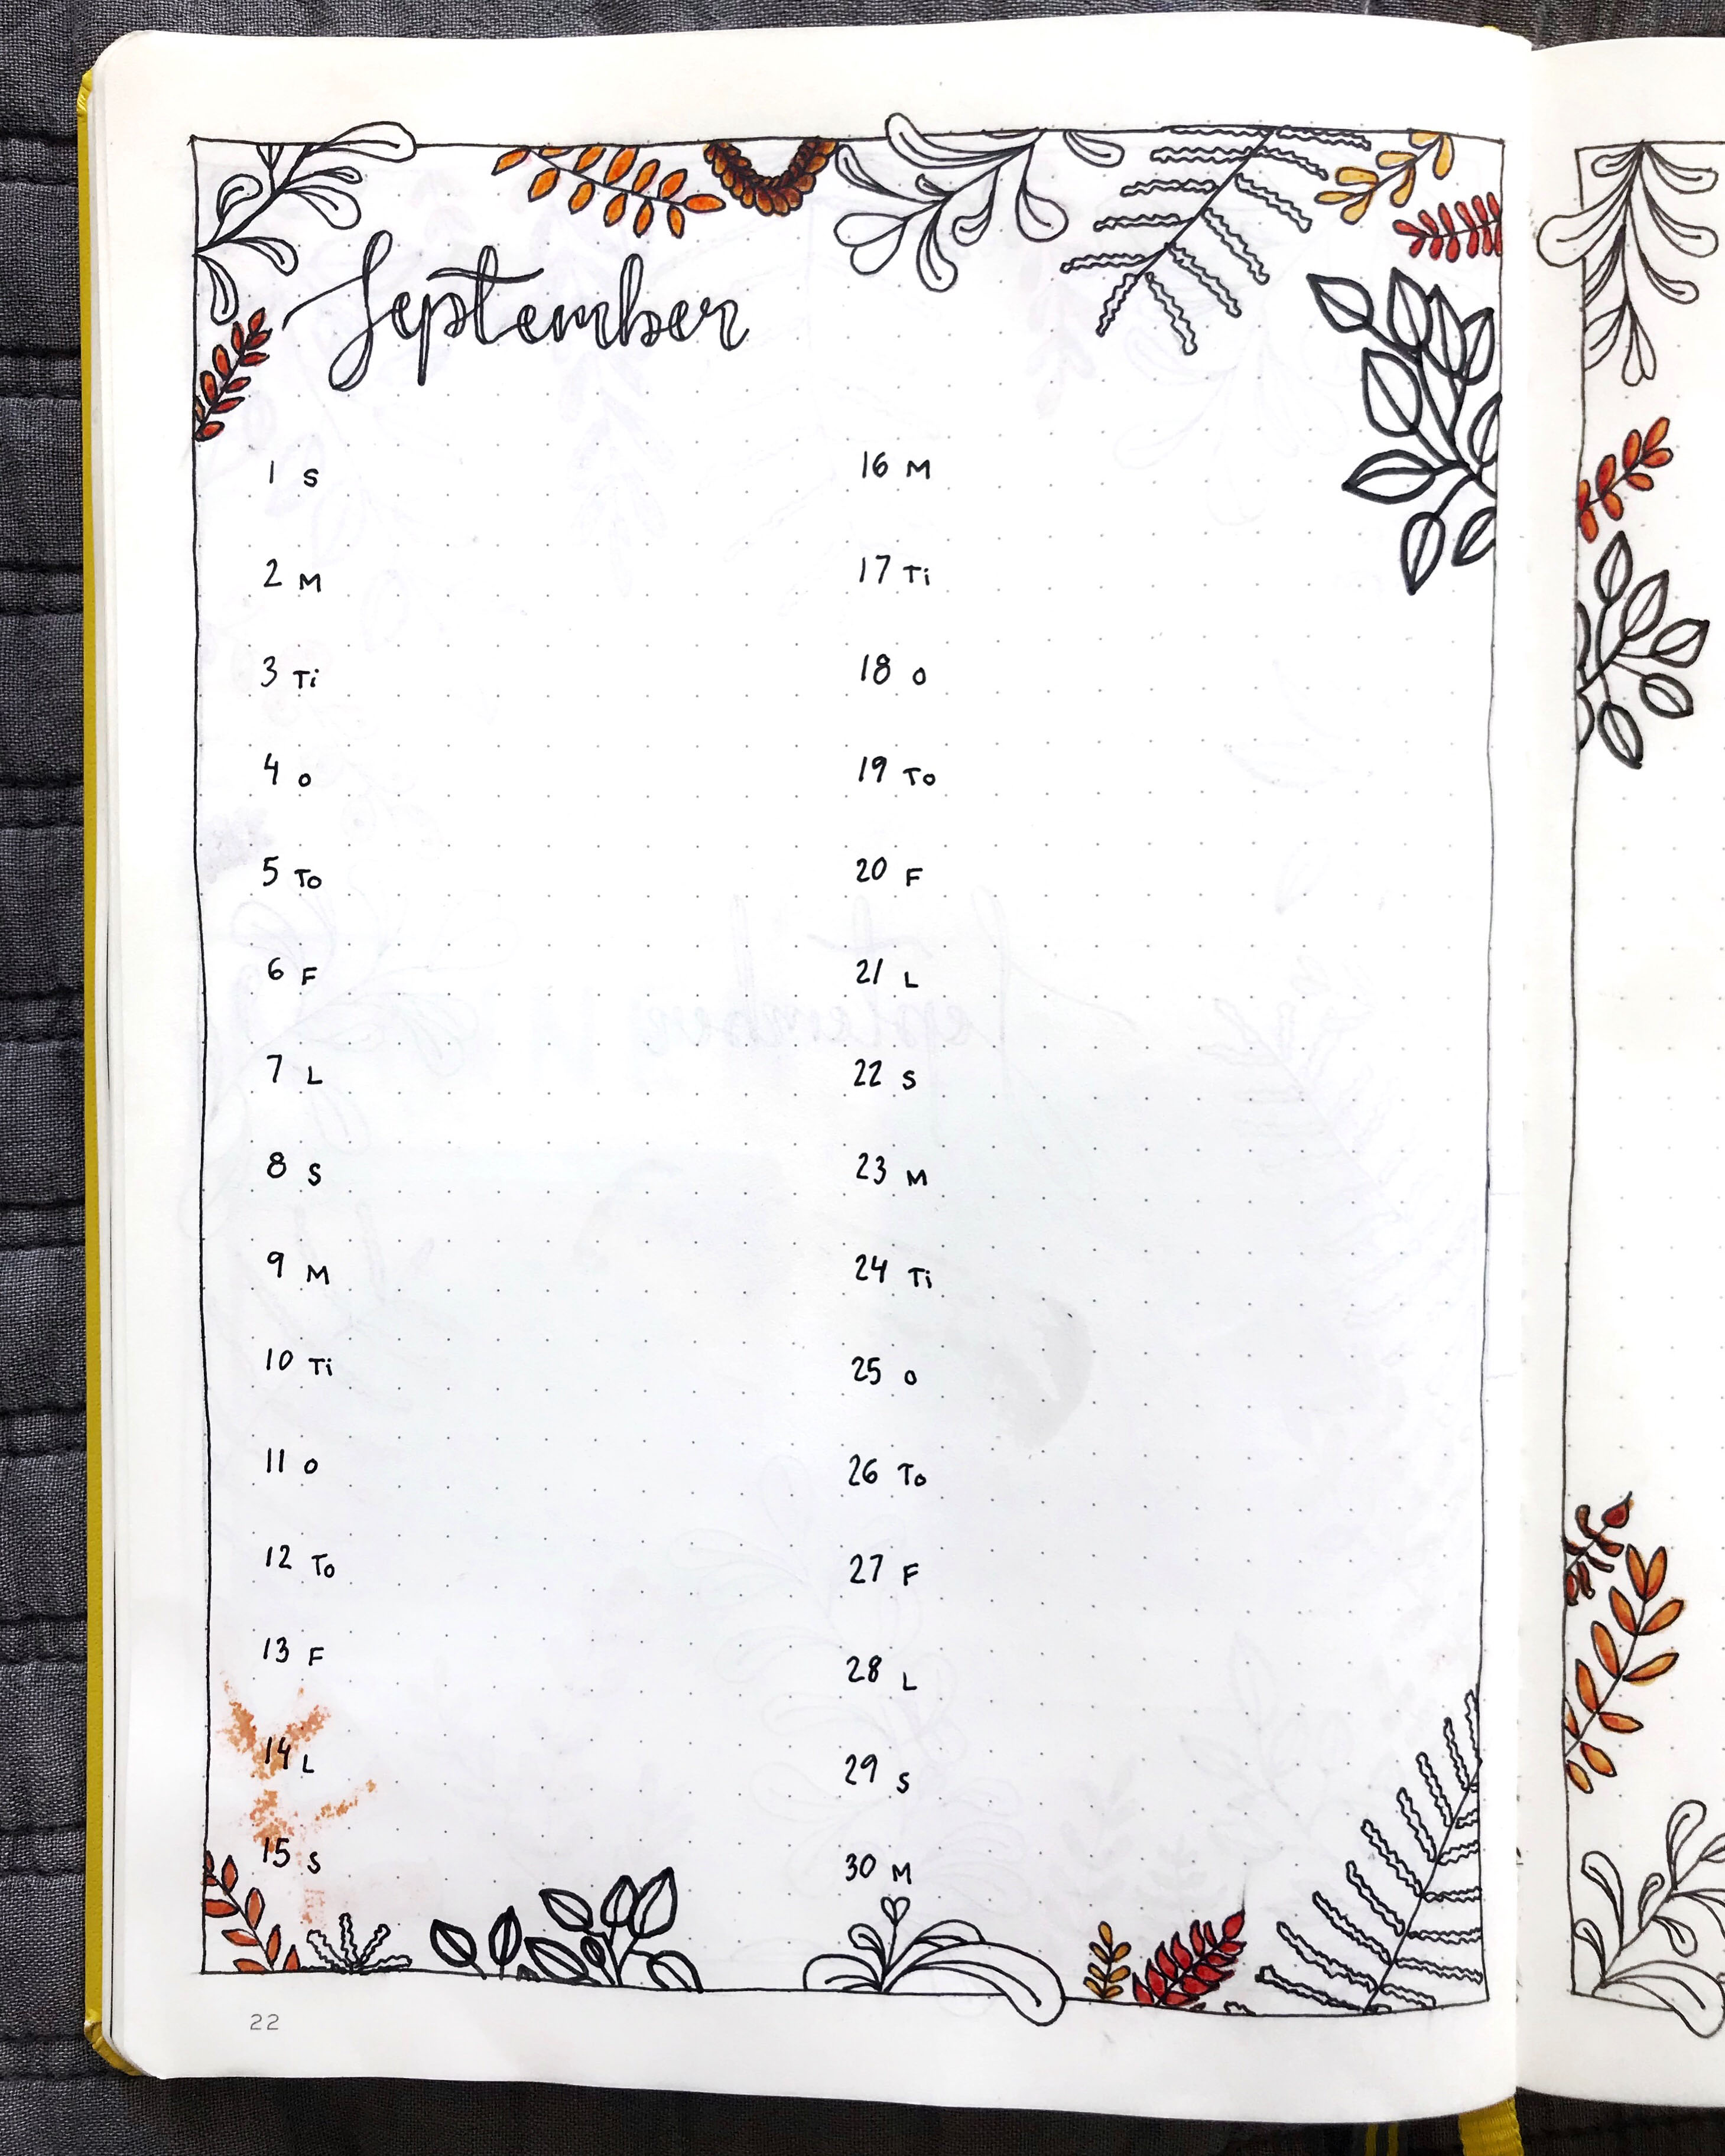 September
1 S
2 M
3 Ti
4 O
5 To
6 F
7 L
8 S
9 M
10 Ti
11 O
12 To
13 F
14 L
15 S
16 M
17 Ti
18 O
19 To
20 F
21 L
22 S
23 M
24 Ti
25 O
26 To
27 F
28 L
29 S
30 M
22